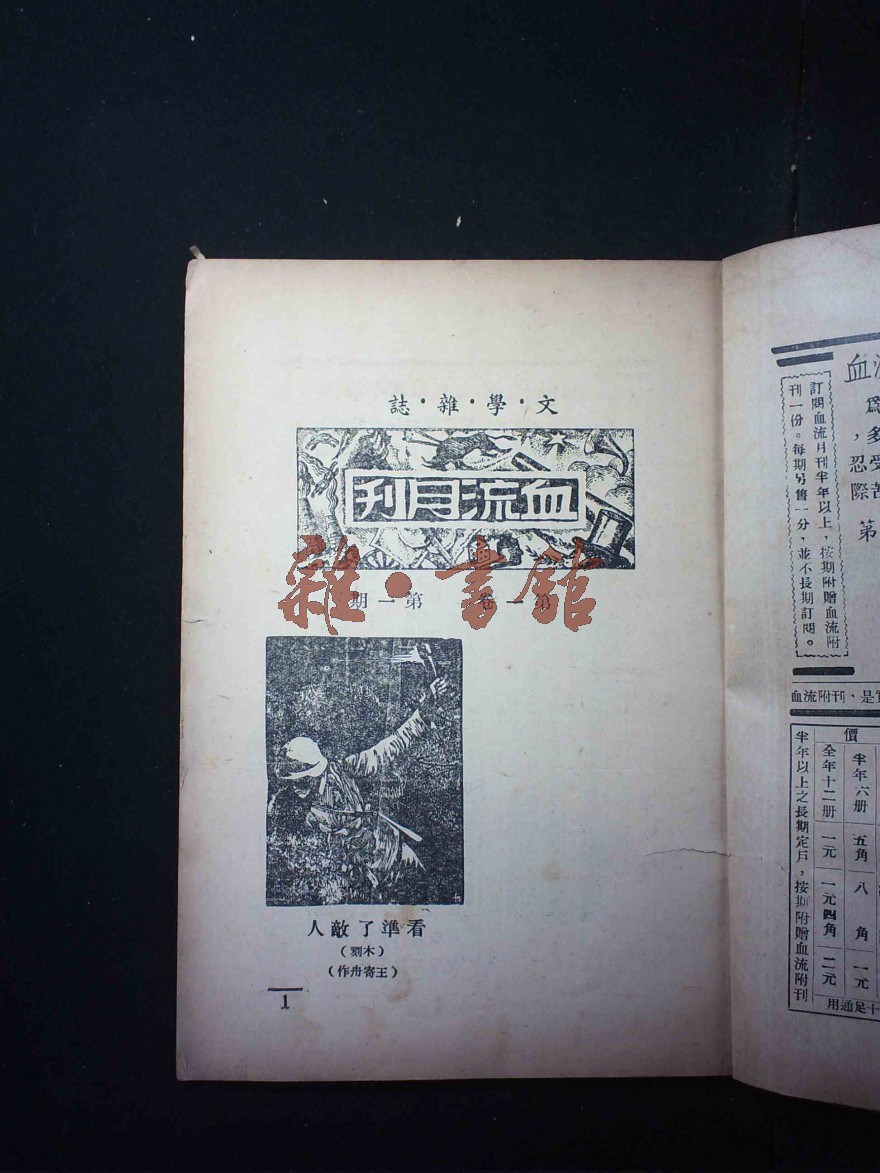 文・學・雜・誌
血流月刊
雜・書館
第一卷 第一期
看準了敵人
（木刻）
（王寄舟作）
1
血
第
訂閱血流月刊半年以上，按期附贈血流附
刊一份。每期另售一分，並不長期訂閱。
血流附刊、是
價
半年六册 五角 八角 一元
全年十二册 一元 一元四角 二元
半年以上之長期定戶，按期附贈血流附刊
十足通用